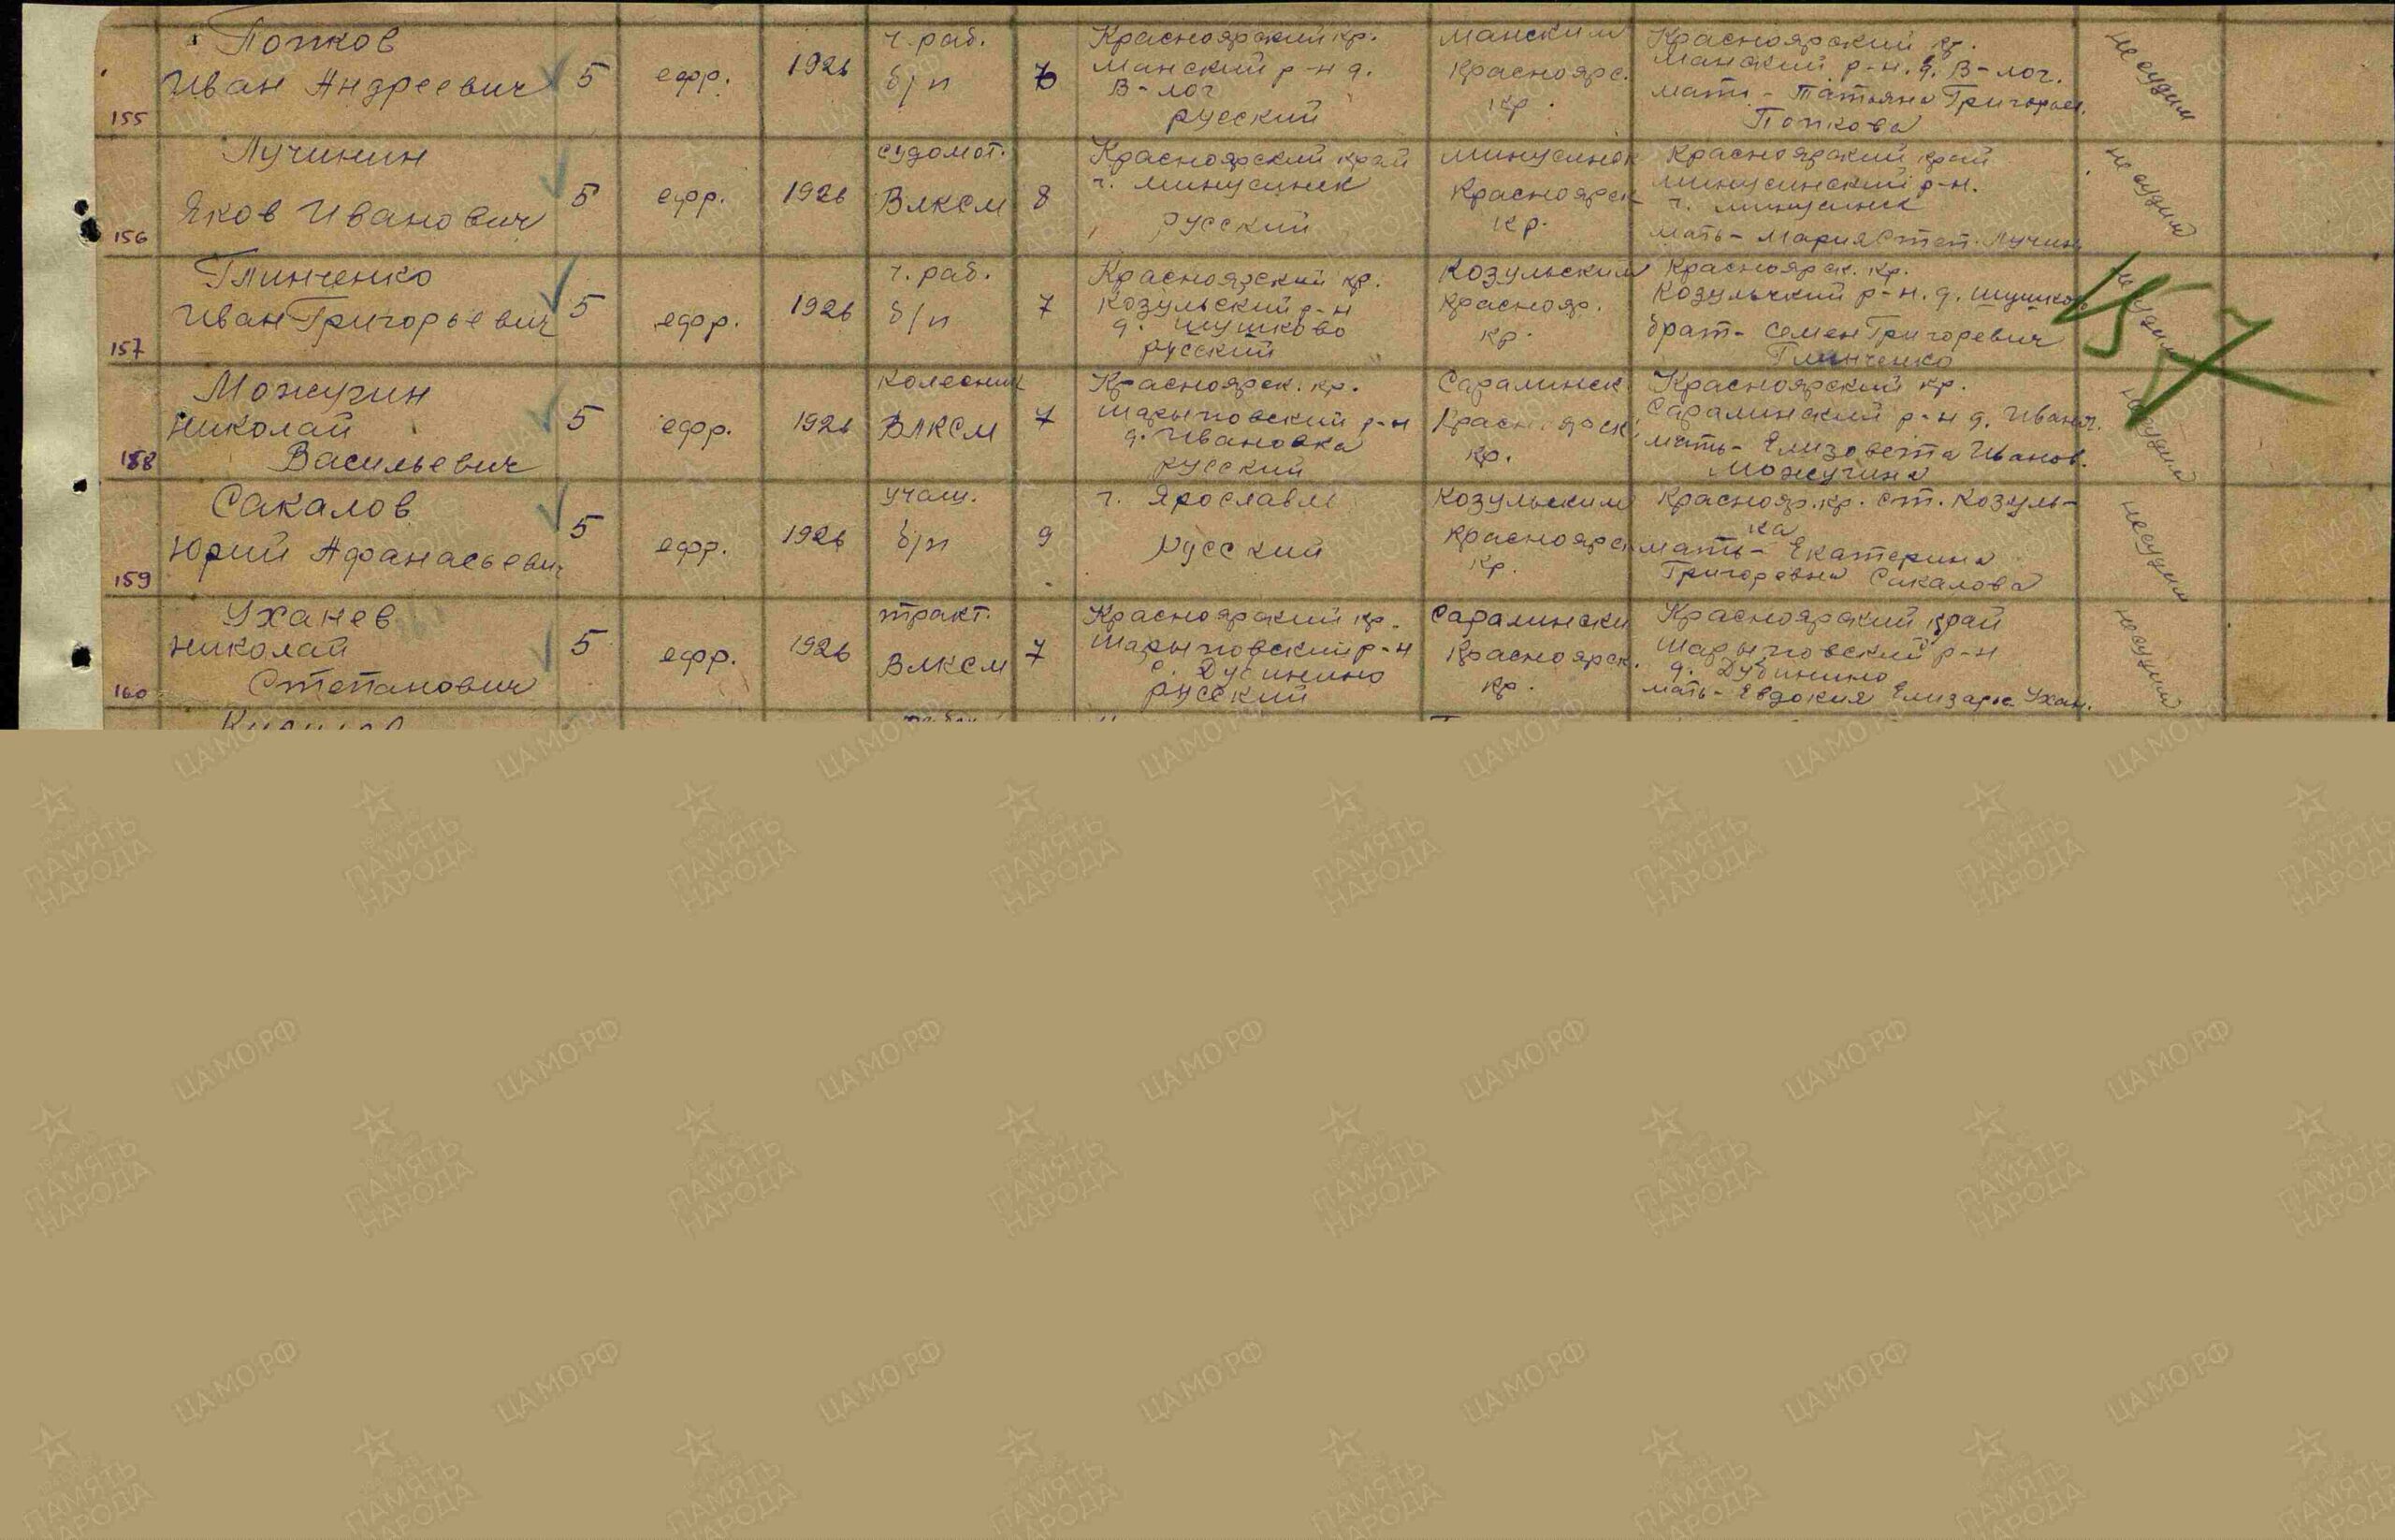 155
Попков
Иван Андреевич
5
ефр.
1926
ч. раб.
б/п
Красноярский кр.
Манский р-н д.
В-лог
русский
Манским
Красноярс.
кр.
Красноярский кр.
Манский р-н. д. В-лог.
мать - Татьяна Григорьев.
Попкова
не судим
156
Лучинин
Яков Иванович
5
ефр.
1926
судомот.
ВЛКСМ
8
Красноярский край
г. Минусинск
русский
Минусинск
Красноярск
кр.
Красноярский край
Минусинский р-н.
г. Минусинск
мать - Мария Степ. Лучин
не судим
157
Глинченко
Иван Григорьевич
5
ефр.
1926
ч. раб.
б/п
7
Красноярский кр.
Козульский р-н
д. Шушково
русский
Козульским
Краснояр.
кр.
Красноярск. кр.
Козульчкий р-н. д. Шушков
брат - Семен Григоревич
Глинченко
не судим
157
158
Можучин
Николай
Васильевич
5
ефр.
1926
колесник
ВЛКСМ
7
Красноярск. кр.
Шарыповский р-н
д. Ивановка
русский
Саралинск.
Красноярск.
кр.
Красноярский кр.
Саралинский р-н д. Иван.
мать - Елизовета Иванов.
Можучина
не судим
159
Сакалов
Юрий Афанасьевич
5
ефр.
1926
учащ.
б/п
9
г. Ярославль
русский
Козульским
Красноярск
кр.
Краснояр. кр. ст. Козуль-
ка
мать - Екатерина
Григоревна Сакалова
не судим
160
Уханев
Николай
Степанович
5
ефр.
1926
тракт.
ВЛКСМ
7
Красноярский кр.
Шарыповский р-н
с. Дубинино
русский
Саралински
Красноярск.
кр.
Красноярский край
Шарыповский р-н
д. Дубинино
мать - Евдокия Елизарье Ухан.
не судим
ЦАМО.РФ
ПАМЯТЬ
НАРОДА